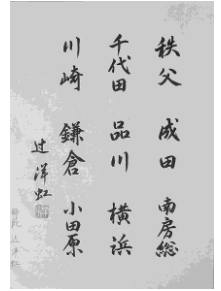 秩父 成田 南房総
千代田 品川 横浜
川崎 鎌倉 小田原
辻洋虹